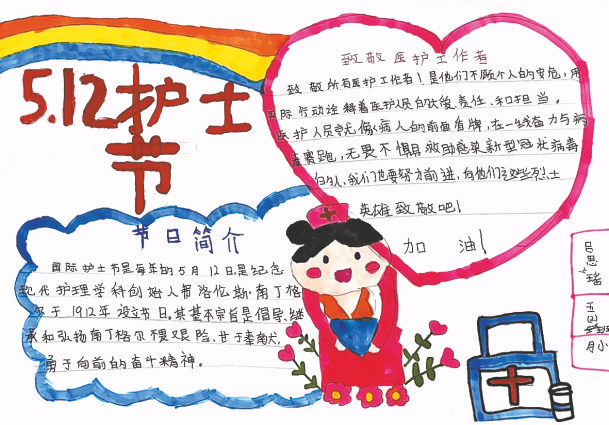 5.12护士
节
致敬医护工作者
致敬所有医护工作者！是他们不顾个人的安危，用
实际行动诠释着医护人员的
责任和担当。
医护人员
病人的前面
在一线奋力与病
毒赛跑，无畏不惧
救助感染新型冠状病毒
我们也要努力前进，向他们这些烈士
英雄致敬吧！
加油！
节日简介
国际护士节是每年的5月12日是纪念
现代护理学科创始人弗洛伦斯·南丁格
尔于1912年设立节日，其基本宗旨是倡导、继
承和弘扬南丁格尔不畏艰险、甘于奉献、
勇于向前的奋斗精神。
吕思
五